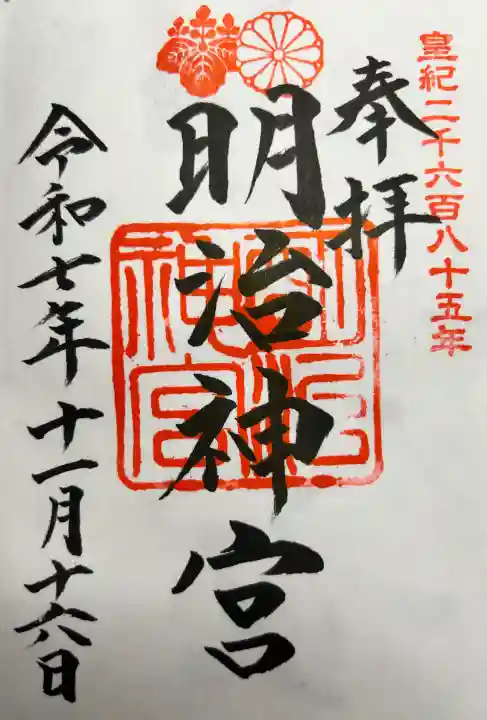 皇紀二千六百八十五年
奉拝
明治神宮
明治神宮
令和七年十一月十六日